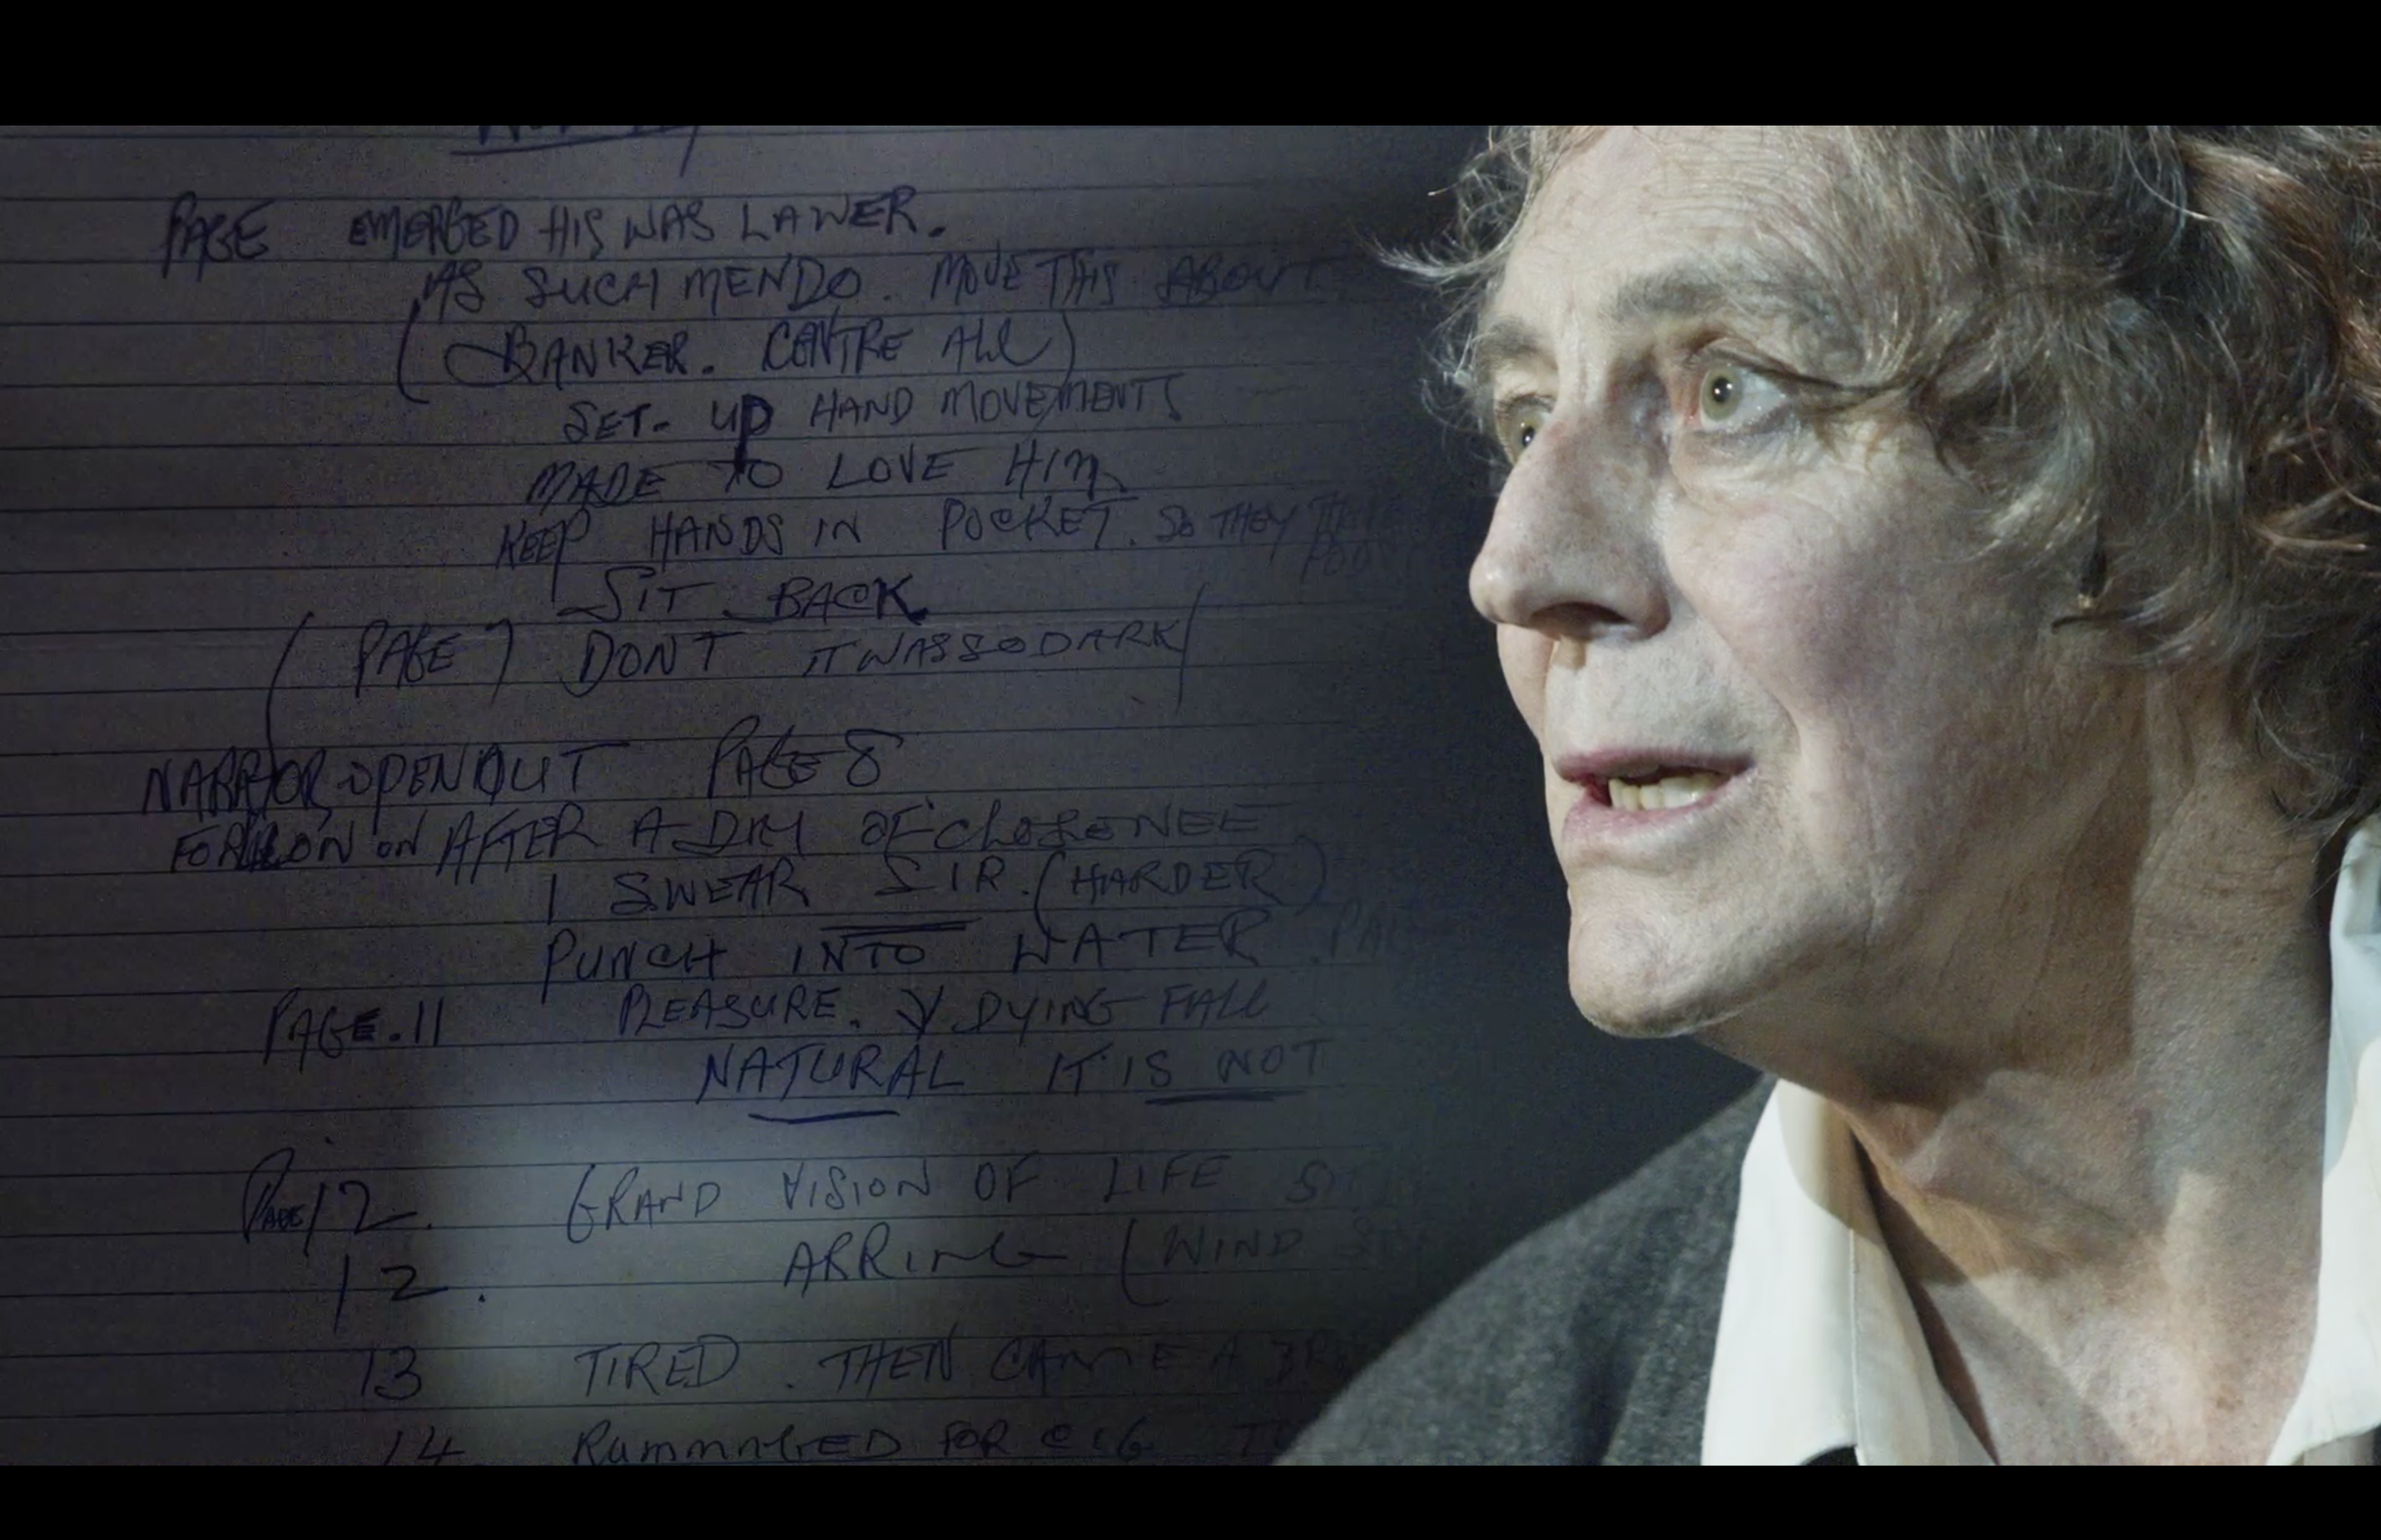 PAGE EMERGED HIS WAS LAWER.
AS SUCH MENDO. MOVE THIS ABOUT
(BANKER. CENTRE ALL)
SET- UP HAND MOVEMENTS
MADE TO LOVE HIM
KEEP HANDS IN POCKET. SO THEY
SIT BACK.
(PAGE) DONT IT WAS SO DARK
OPEN OUT PAGE 8
ON AFTER A DAY OF
I SWEAR SIR. (HARDER)
PUNCH INTO WATER.
PAGE.11 PLEASURE. DYING FALL
NATURAL IT IS NOT
PAGE 12. GRAND VISION OF LIFE
12. ARRING (WIND
13 TIRED. THEN CAME A
14 RUMMAGED FOR CIG